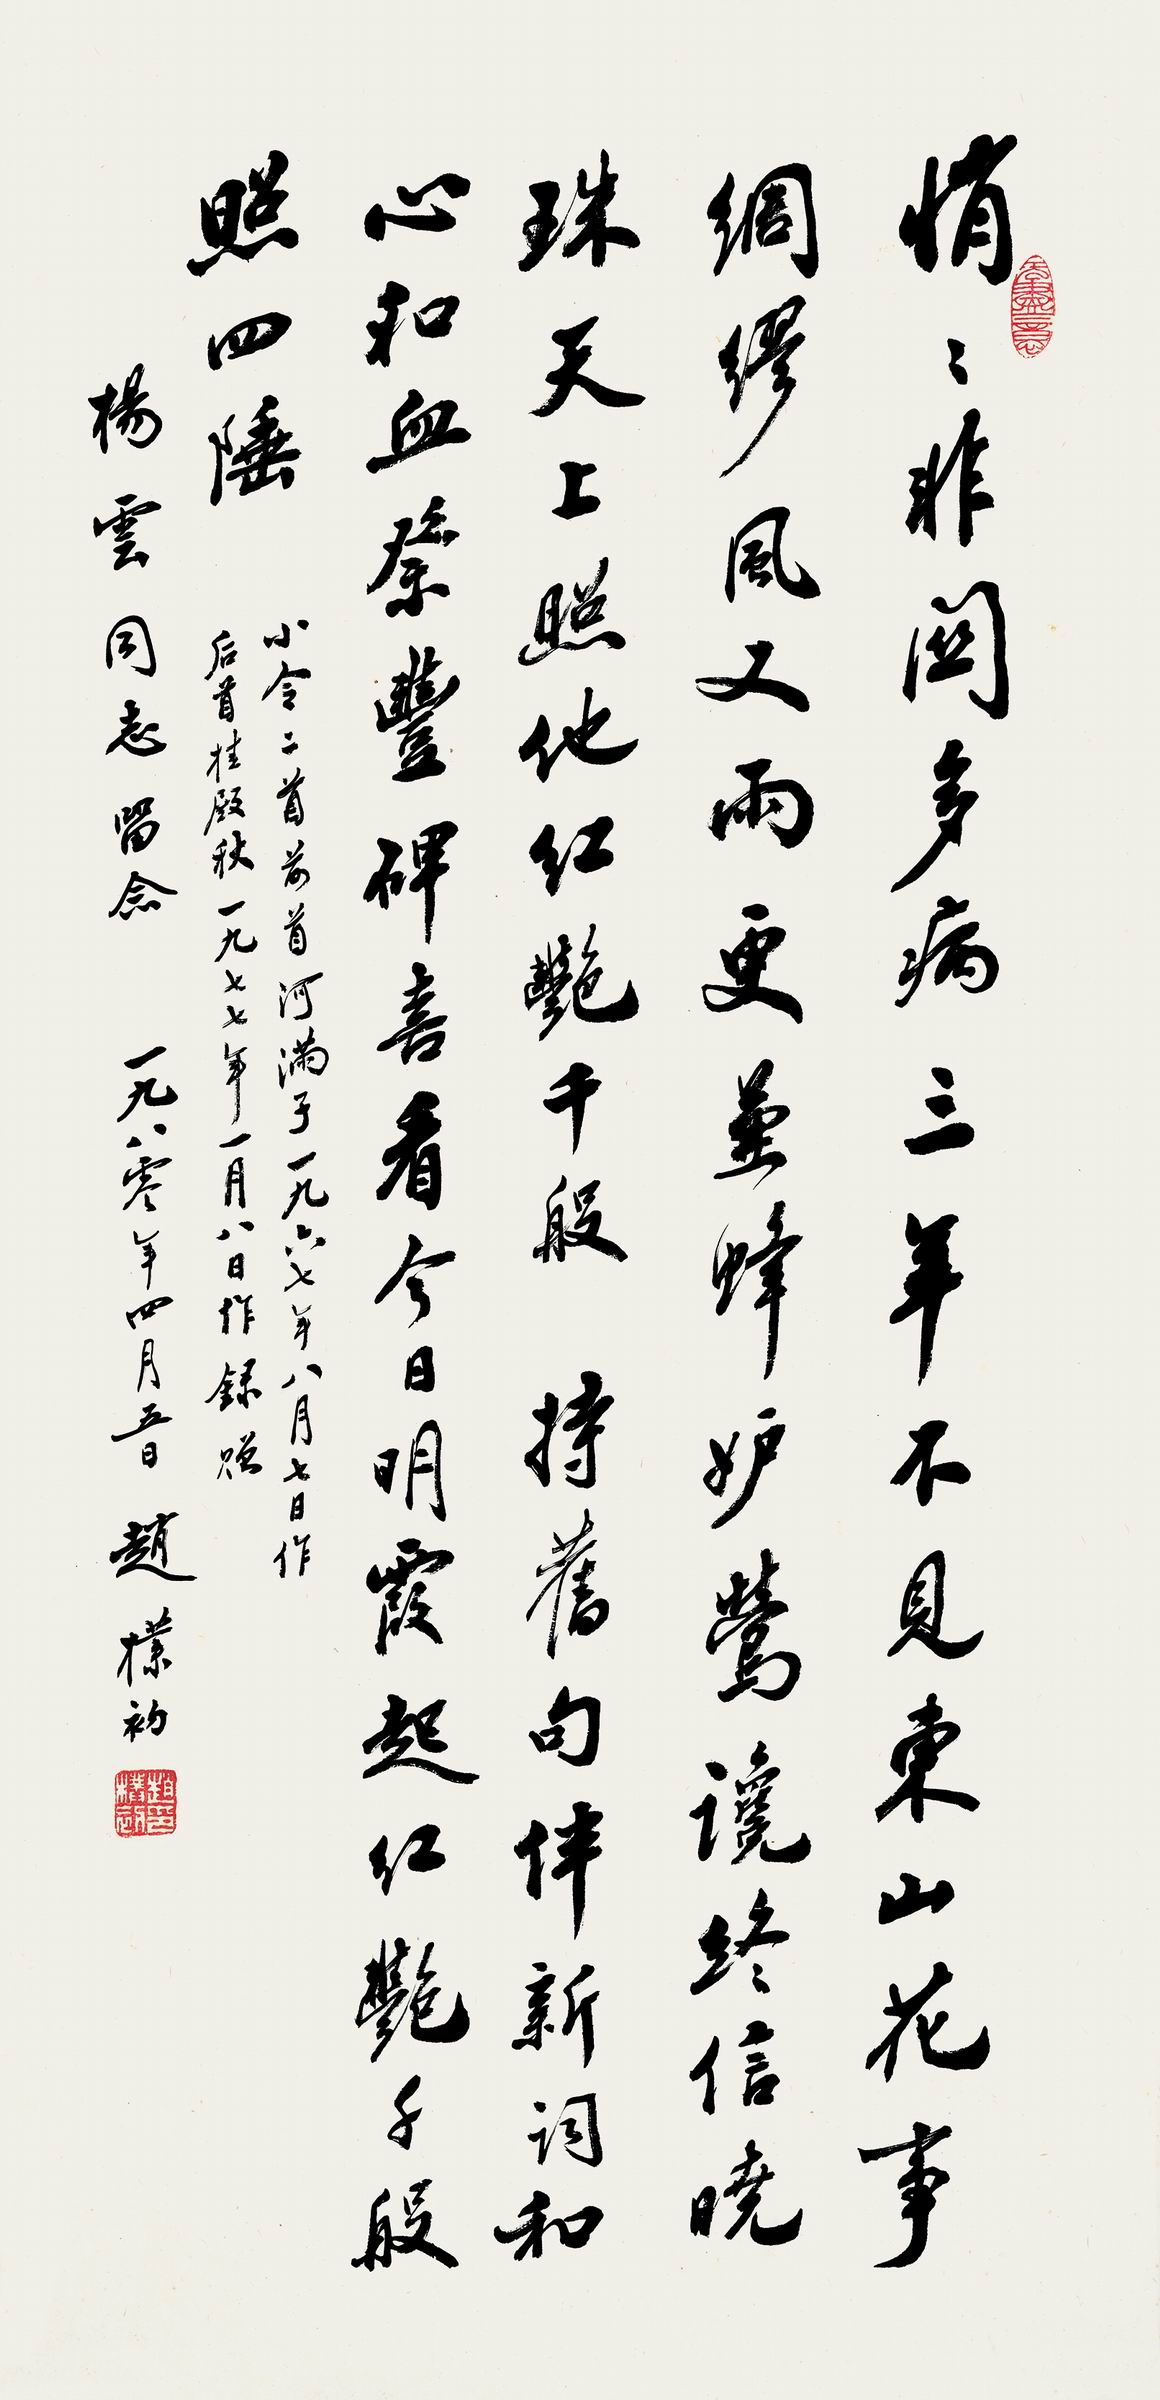 悄々非関多病三年不見東山花事
綢繆風又雨更並蜂妒鶯讒終信曉
珠天上照他紅艷千般 持舊句伴新詞和
心和血祭豐碑喜看今日明霞起紅艷千般
照四陲
小令二首前首河满子一九六七年八月七日作
后首桂殿秋一九七七年一月八日作録贈
楊雲同志留念 一九八零年四月五日 趙樸初
無盡意
趙樸初印